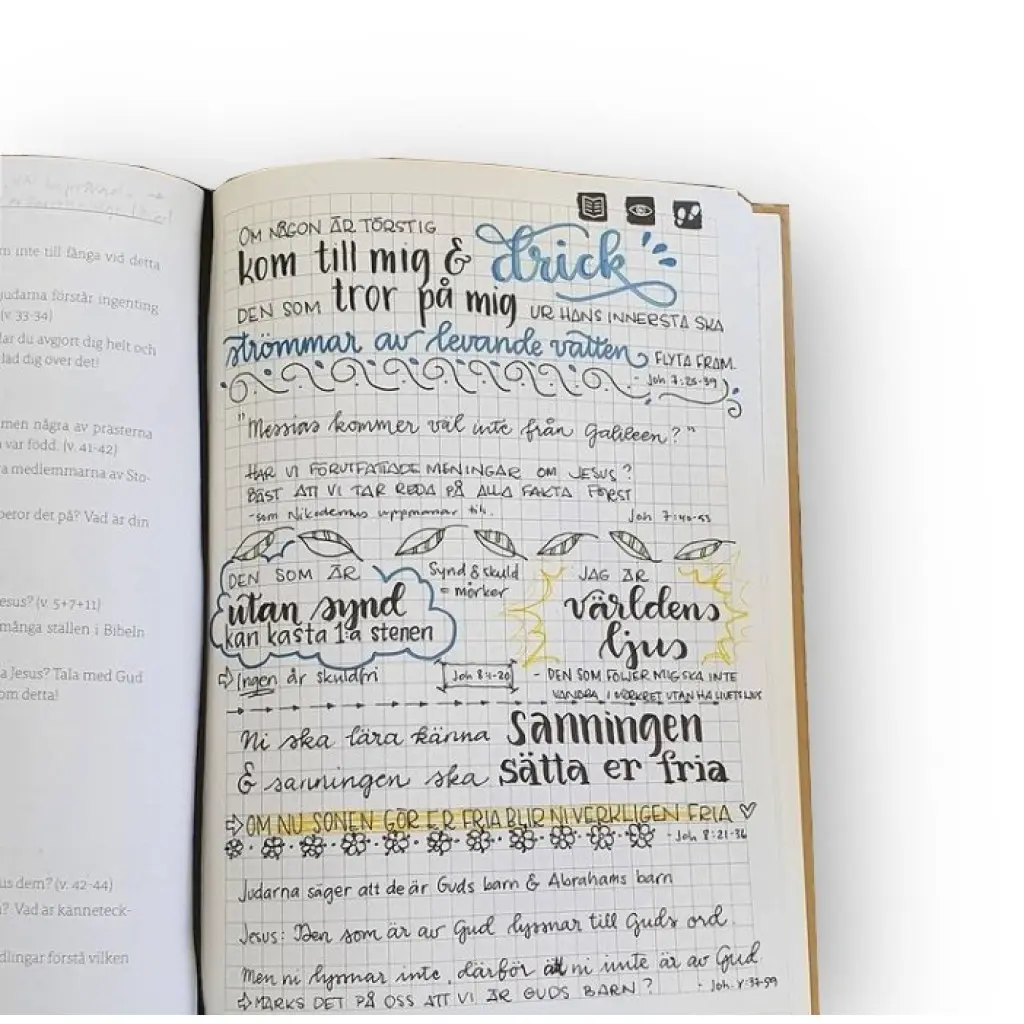 m inte till fånga vid detta
judarna förstår ingenting
(v. 33-34)
ar du avgjort dig helt och
lad dig över det!
men några av prästerna
var född. (v. 41-42)
a medlemmarna av Sto-
beror det på? Vad är din
esus? (v. 5+7+11)
många ställen i Bibeln
a Jesus? Tala med Gud
om detta!
us dem? (v. 42-44)
? Vad är känneteck-
dlingar förstå vilken
OM NÅGON ÄR TÖRSTIG
kom till mig & drick
DEN SOM tror på mig UR HANS INNERSTA SKA
strömmar av levande vatten FLYTA FRAM.
- Joh 7:25-39
"Messias kommer väl inte från Galileen?"
HAR VI FÖRUTFATTADE MENINGAR OM JESUS?
BÄST ATT VI TAR REDA PÅ ALLA FAKTA FÖRST
-som Nikodemus uppmanar till.
Joh 7:40-53
DEN SOM ÄR
utan synd
kan kasta 1:a stenen
⇨ Ingen är skuldfri
Synd & skuld
= mörker
Joh 8:1-20
JAG ÄR
världens
ljus
- DEN SOM FÖLJER MIG SKA INTE
VANDRA I MÖRKRET UTAN HA LIVETS LJUS
Ni ska lära känna sanningen
& sanningen ska sätta er fria
⇨ OM NU SONEN GÖR ER FRIA BLIR NI VERKLIGEN FRIA ♡
- Joh 8:21-36
Judarna säger att de är Guds barn & Abrahams barn
Jesus: Den som är av Gud lyssnar till Guds ord.
Men ni lyssnar inte, därför att ni inte är av Gud
⇨ MÄRKS DET PÅ OSS ATT VI ÄR GUDS BARN?